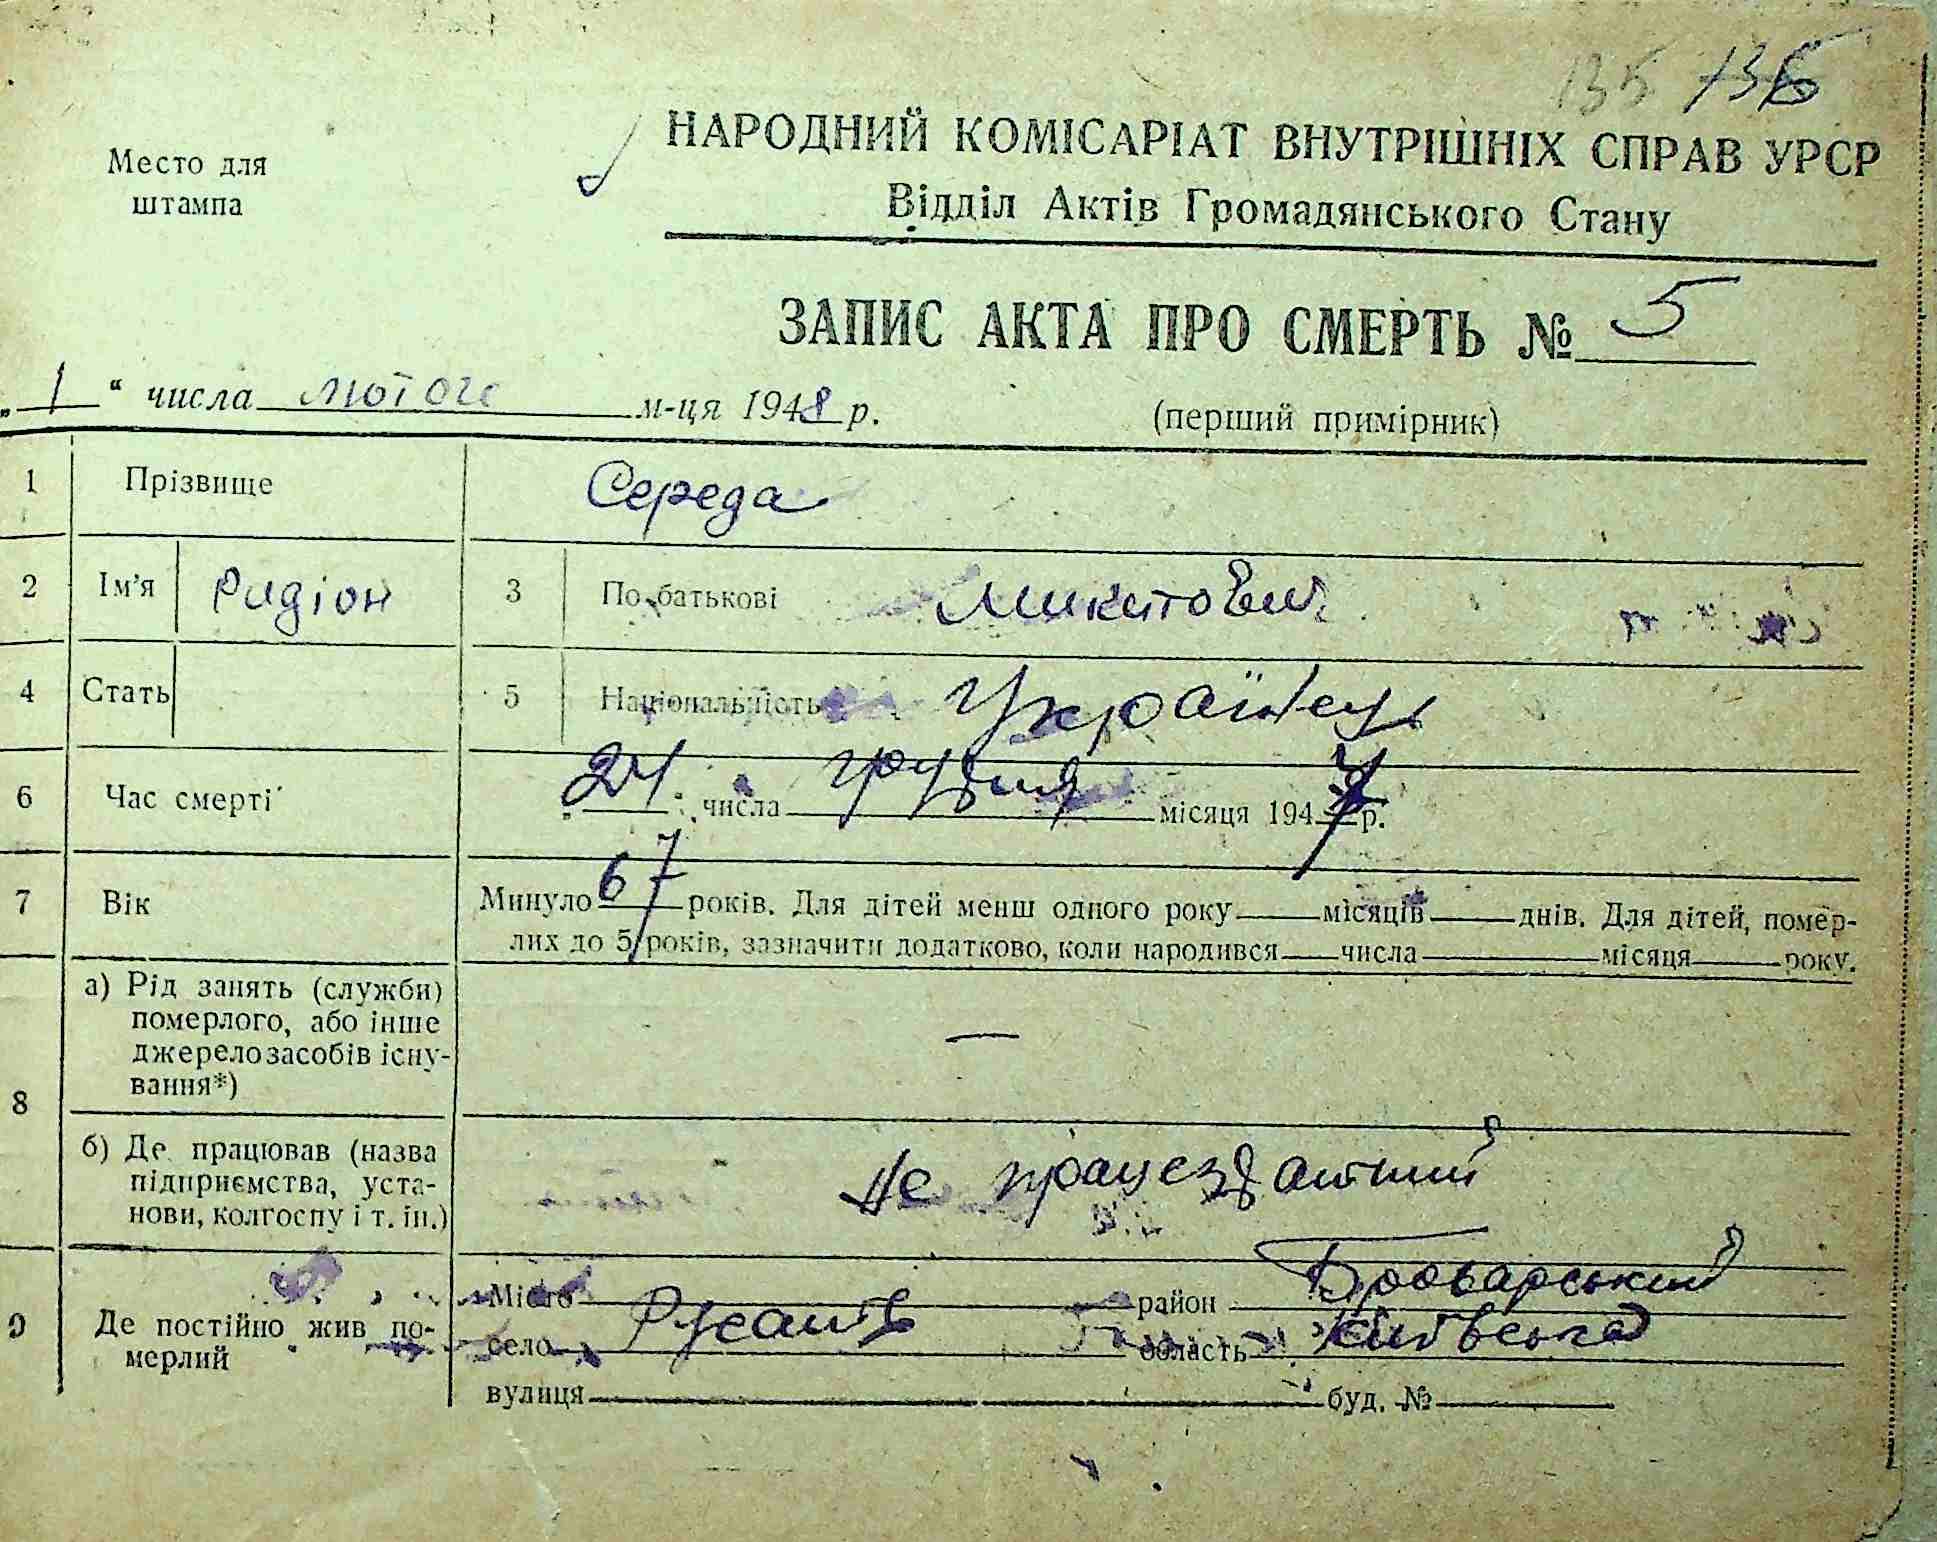 135 136
Место для
штампа
НАРОДНИЙ КОМІСАРІАТ ВНУТРІШНІХ СПРАВ УРСР
Відділ Актів Громадянського Стану
ЗАПИС АКТА ПРО СМЕРТЬ № 5
„1“ числа лютого м-ця 1948 р. (перший примірник)
1 Прізвище Середа
2 Ім’я Ридіон 3 По батькові Микитович
4 Стать 5 Національність Українець
6 Час смерті 24 числа грудня місяця 1947 р.
7 Вік Минуло 67 років. Для дітей менш одного року місяців днів. Для дітей, помер-
лих до 5 років, зазначити додатково, коли народився числа місяця року.
8 а) Рід занять (служби)
померлого, або інше
джерело засобів існу-
вання*) —
б) Де працював (назва
підприємства, уста-
нови, колгоспу і т. ін.) не працездатний
9 Де постійно жив по-
мерлий
Місто район Броварський
село Русанів область Київська
вулиця буд. №